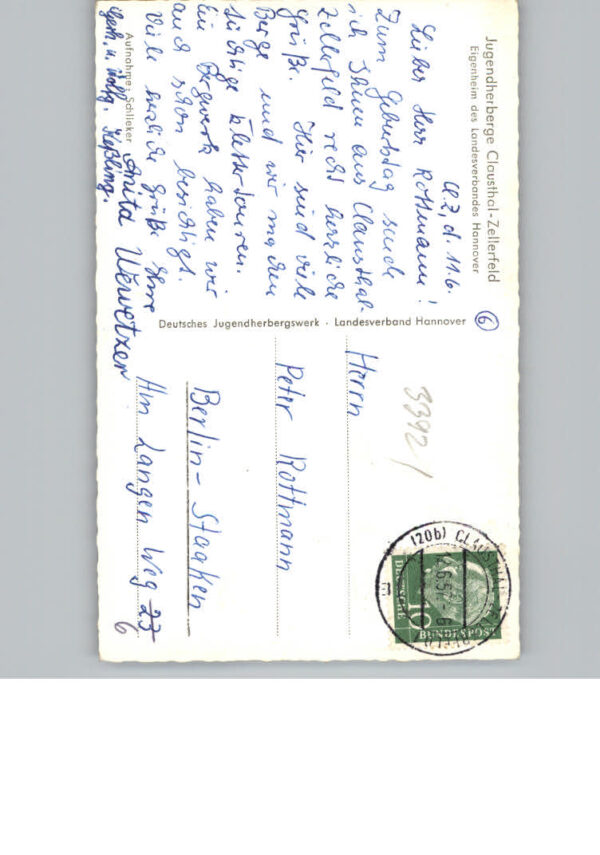 Jugendherberge Clausthal-Zellerfeld
Eigenheim des Landesverbandes Hannover
Cl.Z, d. 11.6.
Lieber Herr Rottmann!
Zum Geburtstag sende
ich Ihnen aus Clausthal-
Zellerfeld recht herzliche
Grüße. Hier sind viele
Berge und wir machen
tüchtige Klettertouren.
Ein Bergwerk haben wir
auch schon besichtigt.
Viele herzliche Grüße Ihre
Anita Wewetzer
Aufnahme: Schlieker
Deutsches Jugendherbergswerk · Landesverband Hannover
6
3392/
Herrn
Peter Rottmann
Berlin-Staaken
Am Langen Weg 23
6
(20b) CLAUSTHAL-ZELLERFELD
DEUTSCHE
10
BUNDESPOST